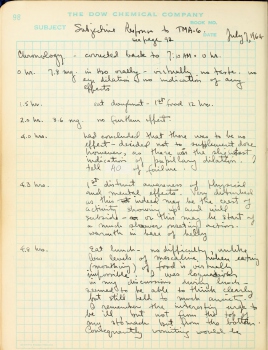 88
THE DOW CHEMICAL COMPANY
SUBJECT
Subjective Response to TMA-6
see page 92
July 7, 1964
Chronology - corrected back to 7:10 AM = 0 hr.
0 hr. 7.8 mg. in H2O orally - virtually no taste. no
eye dilation no indication of any
effects
1.5 hr. eat doughnut - 1st food 12 hrs.
2.0 hr. 3.6 mg. no further effect
4.0 hrs. had concluded that there was to be no
effect - decided not to supplement dose
however, as there was the slightest
indication of pupillary dilation,
tell of failure.
4.3 hrs. 1st distinct awareness of physical
and mental effects.
this indeed may be the crest of
activity showing up and will
subside - or this may be start of
a much slower onsetting action.
warmth in base of belly
4.8 hr. Eat lunch - no difficulty, unlike
low levels of mescaline, when eating
(mouthing) of food is virtually
impossible. I was
in my discussions during lunch -
seemed to be able to think clearly
but still talk to much
I remember the
be ill but not from the top of
my stomach but from the bottom.
Consequently vomiting would be